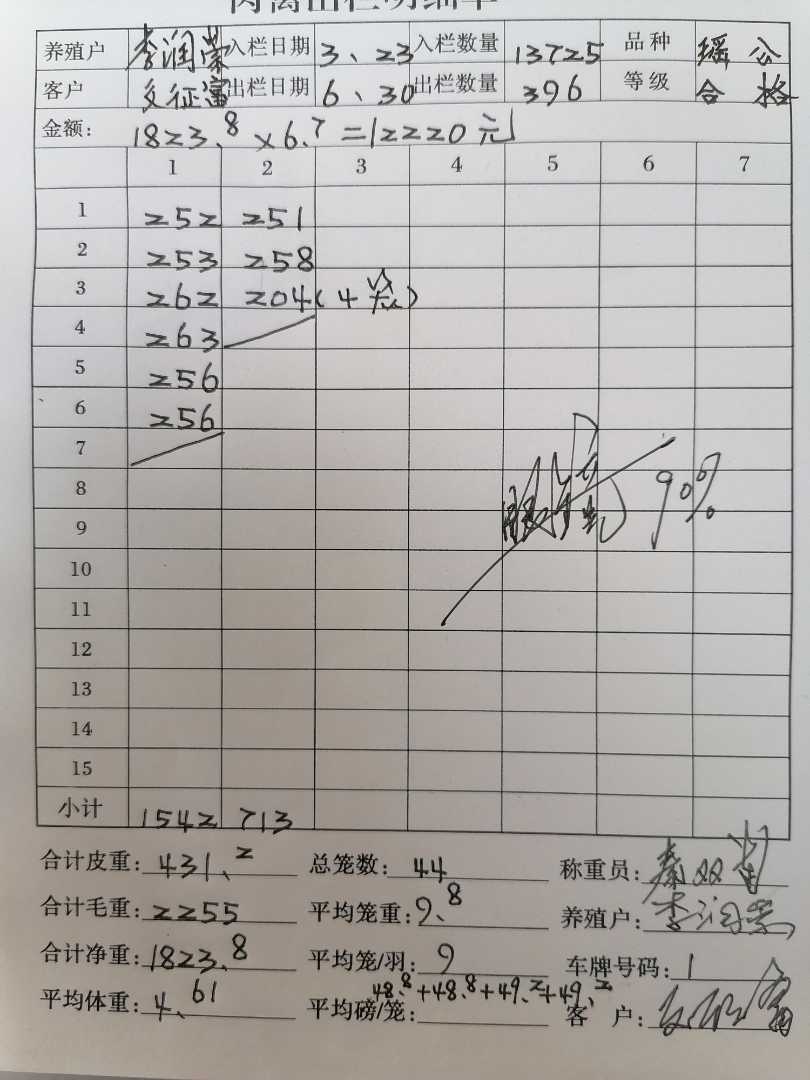 肉禽出栏明细单
养殖户 李润荣 入栏日期 3、23 入栏数量 13725 品种 瑶公
客户 文征富 出栏日期 6、30 出栏数量 396 等级 合格
金额： 1823.8×6.7=12220元
1 2 3 4 5 6 7
1 252 251
2 253 258
3 262 204(4笼)
4 263
5 256
6 256
7
90%
8
9
10
11
12
13
14
15
小计 1542 713
合计皮重：431、2 总笼数：44 称重员：秦双
合计毛重：2255 平均笼重：9、8 养殖户：李润荣
合计净重：1823、8 平均笼/羽：9 车牌号码：1
平均体重：4、61 平均磅/笼：48、8+48、8+49、2+49、2 客户：